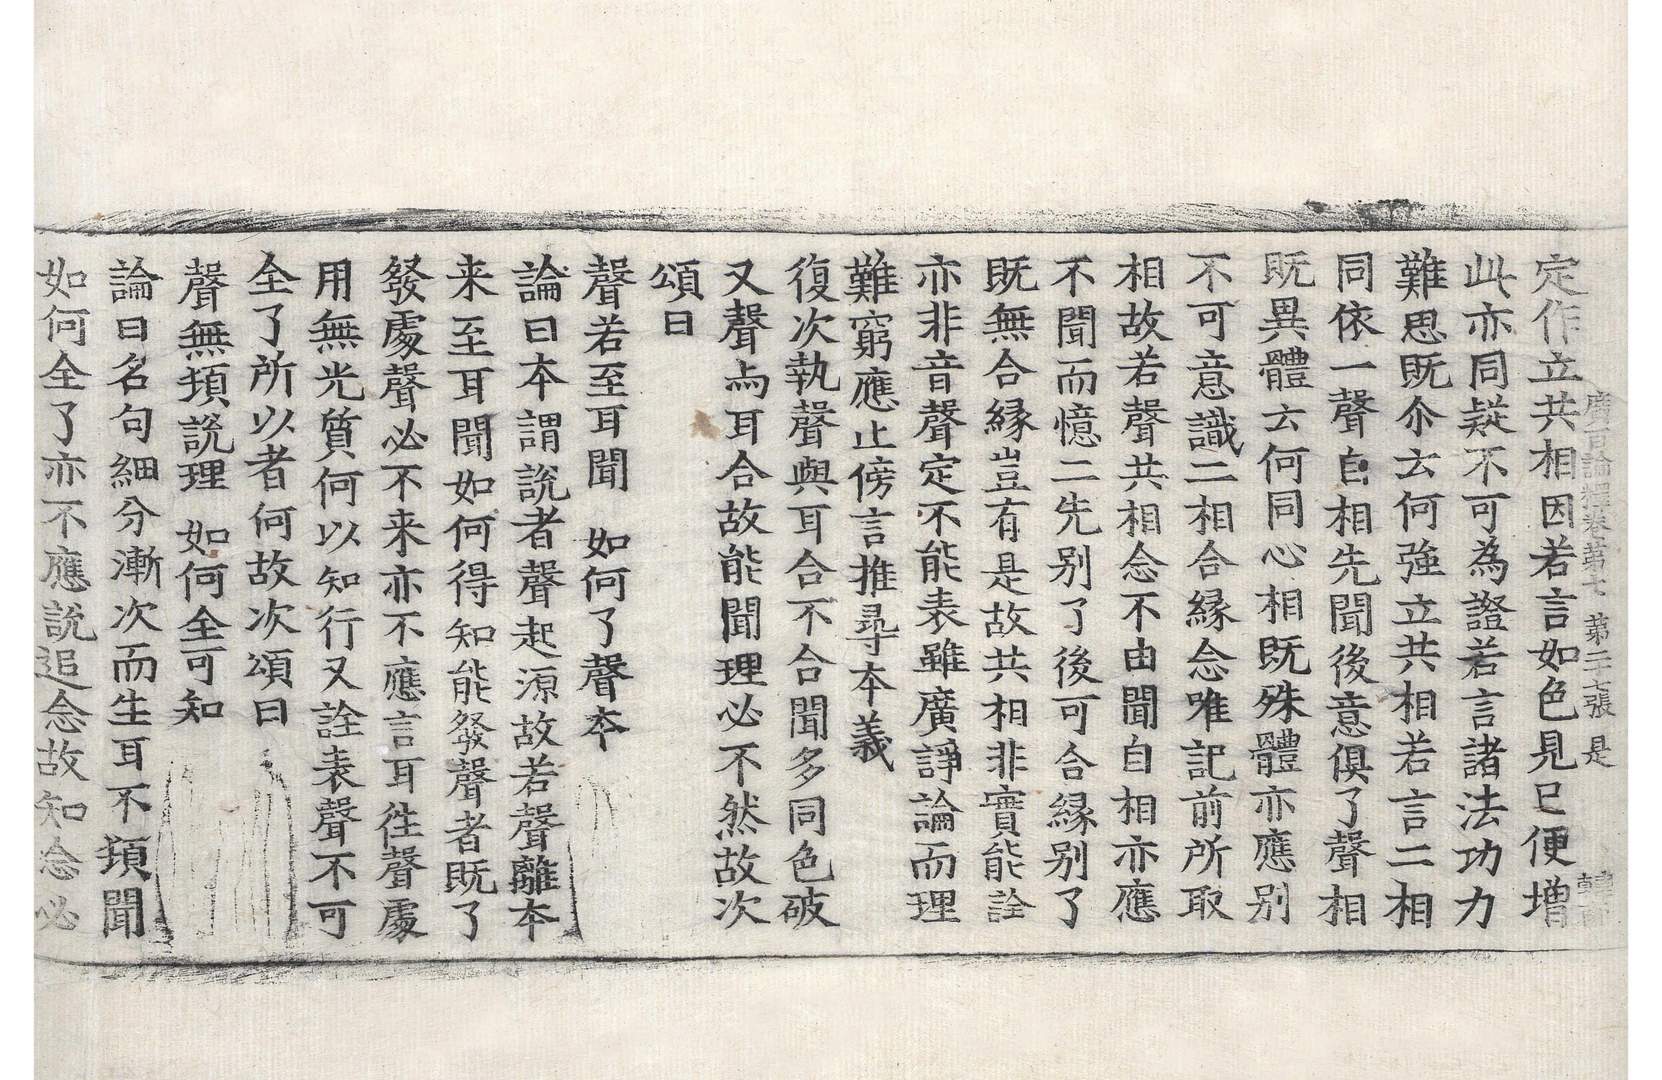 廣百論釋卷第七 第二十七張 是
定作立共相因若言如色見已便增
此亦同疑不可為證若言諸法功力
難思既尒云何強立共相若言二相
同依一聲自相先聞後意俱了聲相
既異體云何同心相既殊體亦應別
不可意識二相合縁念唯記前所取
相故若聲共相念不由聞自相亦應
不聞而憶二先別了後可合縁別了
既無合縁豈有是故共相非實能詮
亦非音聲定不能表雖廣諍論而理
難窮應止傍言推尋本義
復次執聲與耳合不合聞多同色破
又聲与耳合故能聞理必不然故次
頌曰
聲若至耳聞 如何了聲本
論曰本謂說者聲起源故若聲離本
来至耳聞如何得知能發聲者既了
發處聲必不来亦不應言耳徃聲處
用無光質何以知行又詮表聲不可
全了所以者何故次頌曰
聲無頓說理 如何全可知
論曰名句細分漸次而生耳不頓聞
如何全了亦不應說追念故知念必